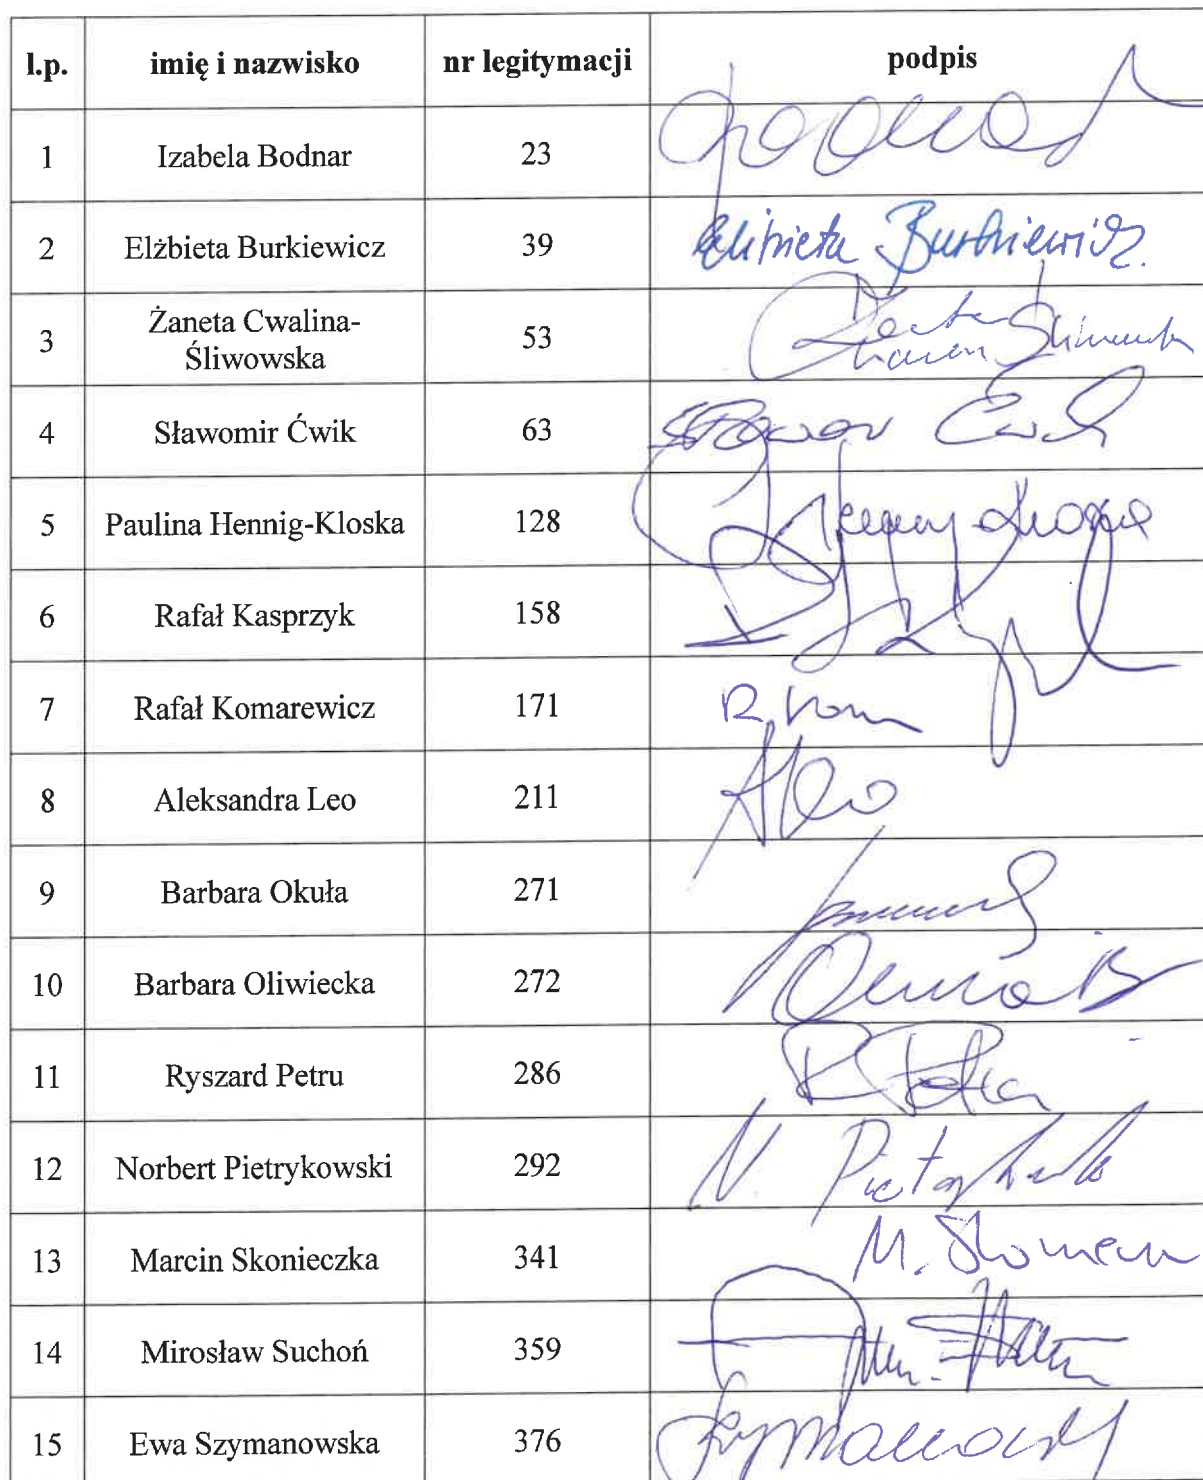 l.p. imię i nazwisko nr legitymacji podpis
1 Izabela Bodnar 23
2 Elżbieta Burkiewicz 39 Elżbieta Burkiewicz
3 Żaneta Cwalina-
Śliwowska 53
4 Sławomir Ćwik 63 Sławomir Ćwik
5 Paulina Hennig-Kloska 128
6 Rafał Kasprzyk 158
7 Rafał Komarewicz 171
8 Aleksandra Leo 211 ALeo
9 Barbara Okuła 271
10 Barbara Oliwiecka 272
11 Ryszard Petru 286 R Petru
12 Norbert Pietrykowski 292 N. Pietrykowski
13 Marcin Skonieczka 341
14 Mirosław Suchoń 359
15 Ewa Szymanowska 376 Szymanowska